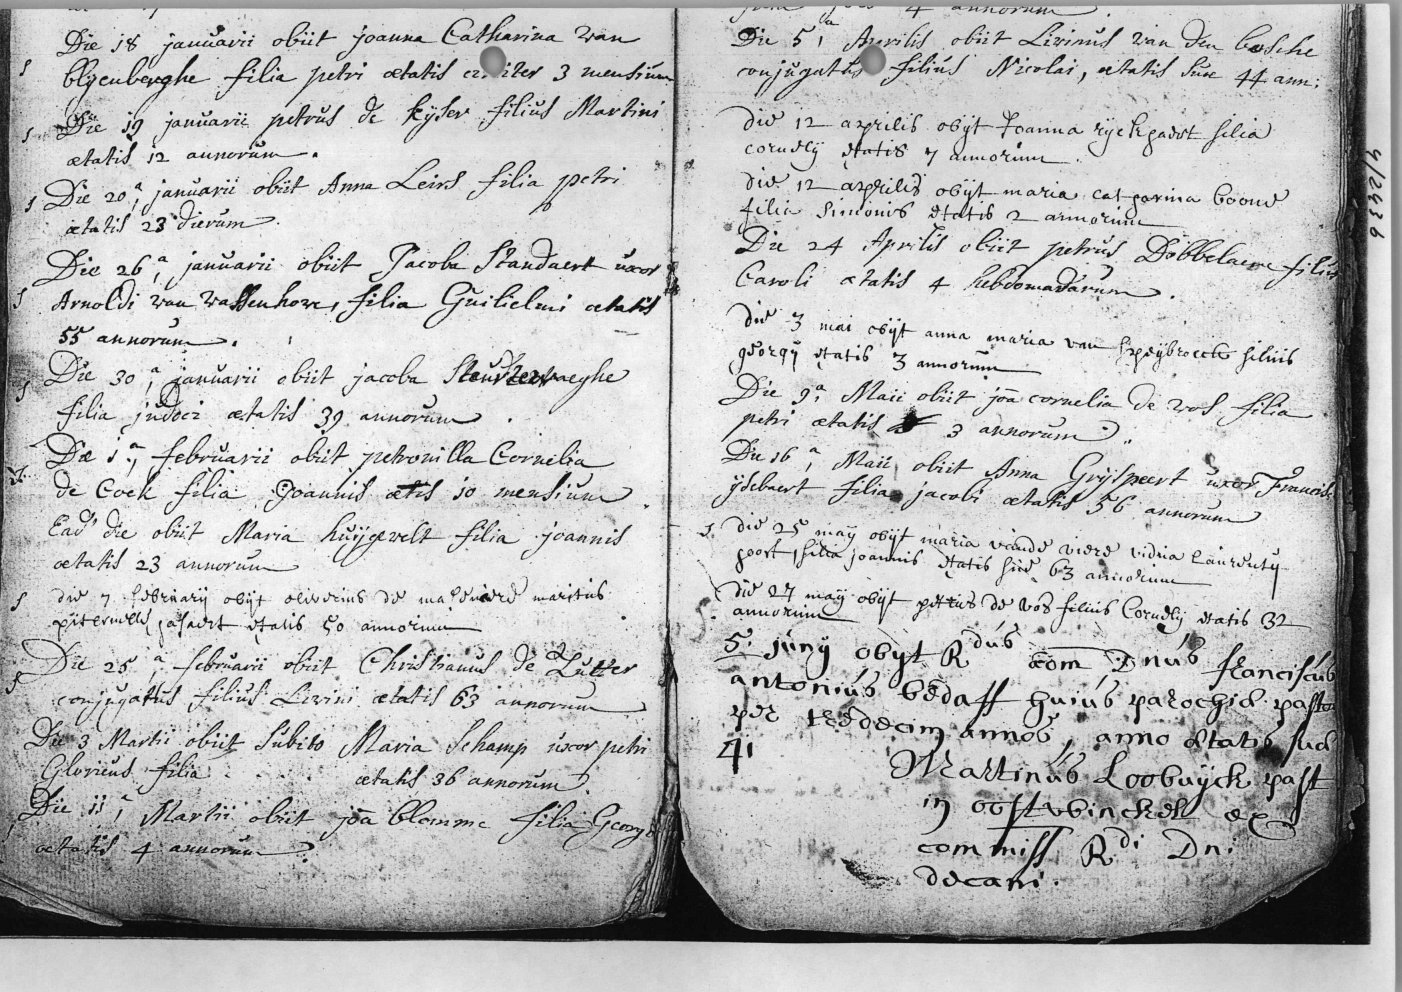 Die 18 januarii obiit joanna Catharina van
blyenberghe filia petri ætatis circiter 3 mensium
Die 19 januarii petrus de kÿser filius Martini
ætatis 12 annorum.
Die 20,a januarii obiit Anna Leirs filia petri
ætatis 23 dierum
Die 26,a januarii obiit Jacoba Standaert uxor
Arnoldi van Wassenhove, filia Guilielmi ætatis
55 annorum.
Die 30,a januarii obiit jacoba
filia judoci ætatis 39 annorum.
Die 1,a februarii obiit petronilla Cornelia
de Cock filia Joannis ætis 10 mensium
Ead' die obiit Maria huÿgevelt filia joannis
ætatis 23 annorum
die 7 februarij obijt oliverius de maritus
petronelle etatis 50 annorum
Die 25,a februarii obiit Christianus de Zutter
conjugatus filius Livini ætatis 63 annorum
Die 3 Martii obiit subito Maria Schamp uxor petri
Glorieus filia ætatis 36 annorum.
Die 11,a Martii obiit joa blomme filia Georgi
ætatis 4 annorum.
4 annorum
Die 5,a Aprilis obiit Livinus van den bossche
conjugatus filius Nicolai, ætatis suæ 44 ann:
die 12 aprilis obijt Joanna rijckaert filia
cornelij etatis 7 annorum.
die 12 aprilis obijt maria catharina boone
filia simonis etatis 2 annorum
Die 24 Aprilis obiit petrus Dobbelaere filius
Caroli ætatis 4 hebdomadarum.
die 3 mai obijt anna maria van speijbroeck filius
georgij etatis 3 annorum
Die 9,a Maii obiit joa cornelia de vos filia
petri ætatis 3 annorum.
Die 16,a Maii obiit Anna Grÿspeert uxor Francisci
ÿdebaert filia jacobi ætatis 56 annorum
die 25 maij obijt maria vande viere vidua laurentij
poost filia joannis etatis sue 63 annorum
die 27 maij obijt petrus de vos filius Cornelij etatis 32
annorum
5. junÿ obÿt Rdus adm Dnus franciscus
antonius bedaff huius parochiæ pastor
per tredecim annos, anno ætatis suæ
41
Martinus Loobuÿck past
in oostwinckel ex
commiss Rdi Dni
decani.
4/2436